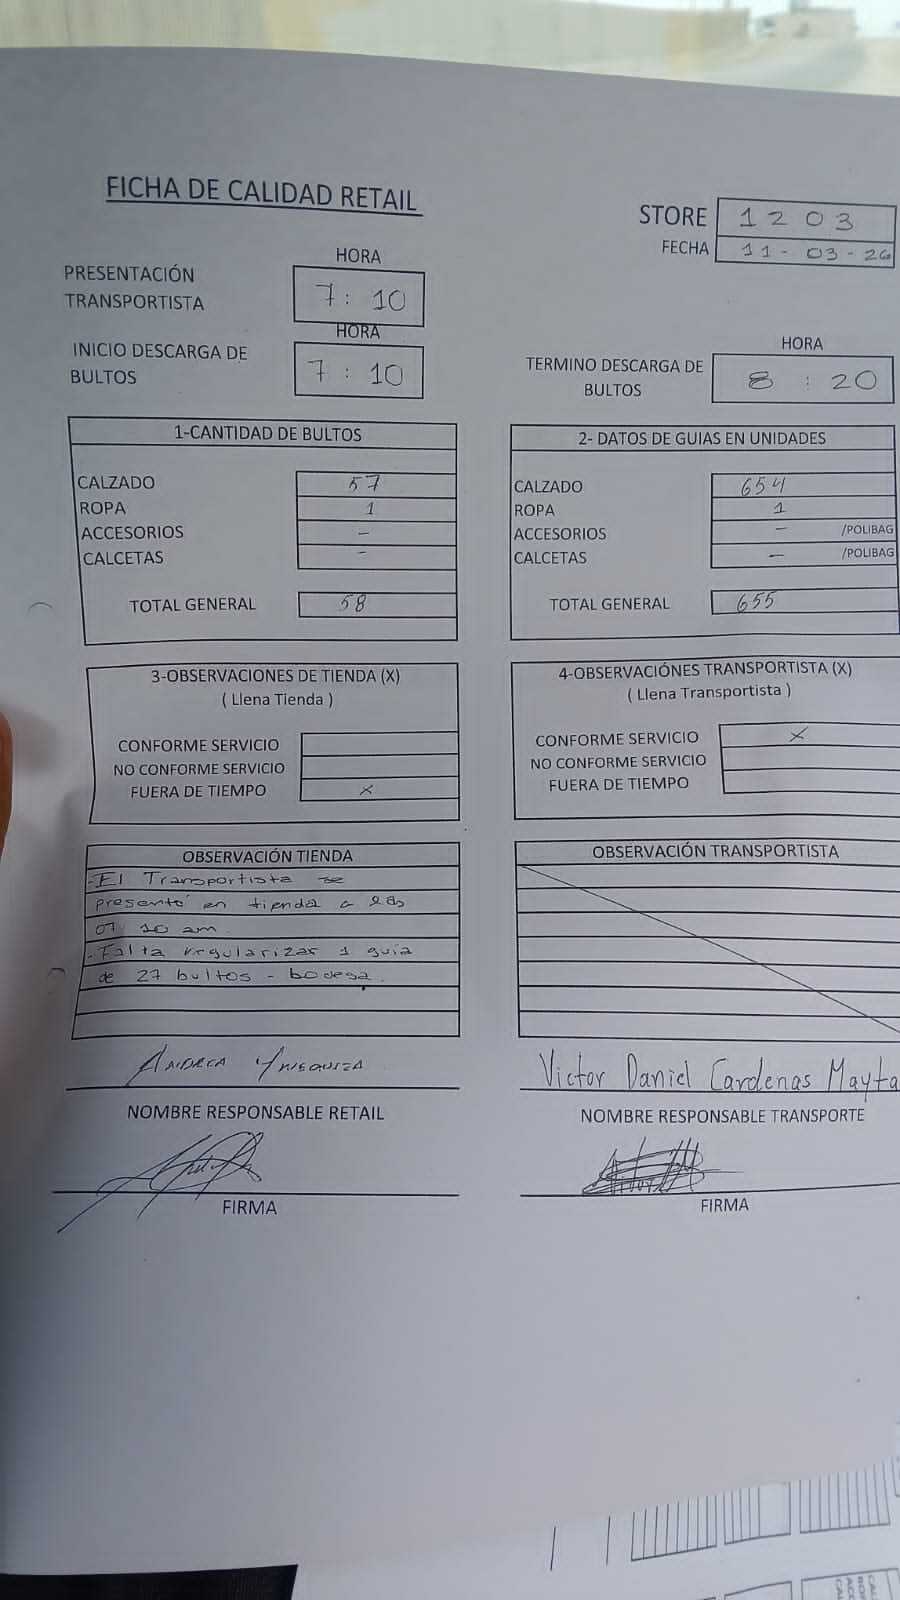 FICHA DE CALIDAD RETAIL
STORE 1203
FECHA 11-03-26
HORA
PRESENTACIÓN TRANSPORTISTA 7:10
HORA
INICIO DESCARGA DE BULTOS 7:10
HORA
TERMINO DESCARGA DE BULTOS 8:20
1-CANTIDAD DE BULTOS
CALZADO 57
ROPA 1
ACCESORIOS -
CALCETAS -
TOTAL GENERAL 58
2- DATOS DE GUIAS EN UNIDADES
CALZADO 654
ROPA 1
ACCESORIOS - /POLIBAG
CALCETAS - /POLIBAG
TOTAL GENERAL 655
3-OBSERVACIONES DE TIENDA (X)
( Llena Tienda )
CONFORME SERVICIO
NO CONFORME SERVICIO
FUERA DE TIEMPO X
4-OBSERVACIÓNES TRANSPORTISTA (X)
( Llena Transportista )
CONFORME SERVICIO X
NO CONFORME SERVICIO
FUERA DE TIEMPO
OBSERVACIÓN TIENDA
-El Transportista se
presentó en tienda a las
07 10 am.
-Falta regularizar 1 guia
de 27 bultos - bodega.
OBSERVACIÓN TRANSPORTISTA
Andrea
NOMBRE RESPONSABLE RETAIL
FIRMA
Victor Daniel Cardenas Mayta
NOMBRE RESPONSABLE TRANSPORTE
FIRMA